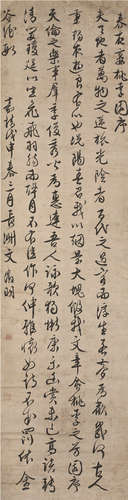 春夜宴桃李園序
夫天地者萬物之逆旅光陰者百代之過客而浮生若夢為歡幾何古人
秉燭夜遊良有以也況陽春召我以煙景大塊假我以文章會桃李之芳園序
天倫之樂事羣季俊秀皆為惠連吾人詠歌獨慚康樂幽賞未已高談轉
清開瓊筵以坐花飛羽觴而醉月不有佳作何伸雅懷如詩不成罰依金
谷酒數
嘉靖戊申春三月長洲文徵明